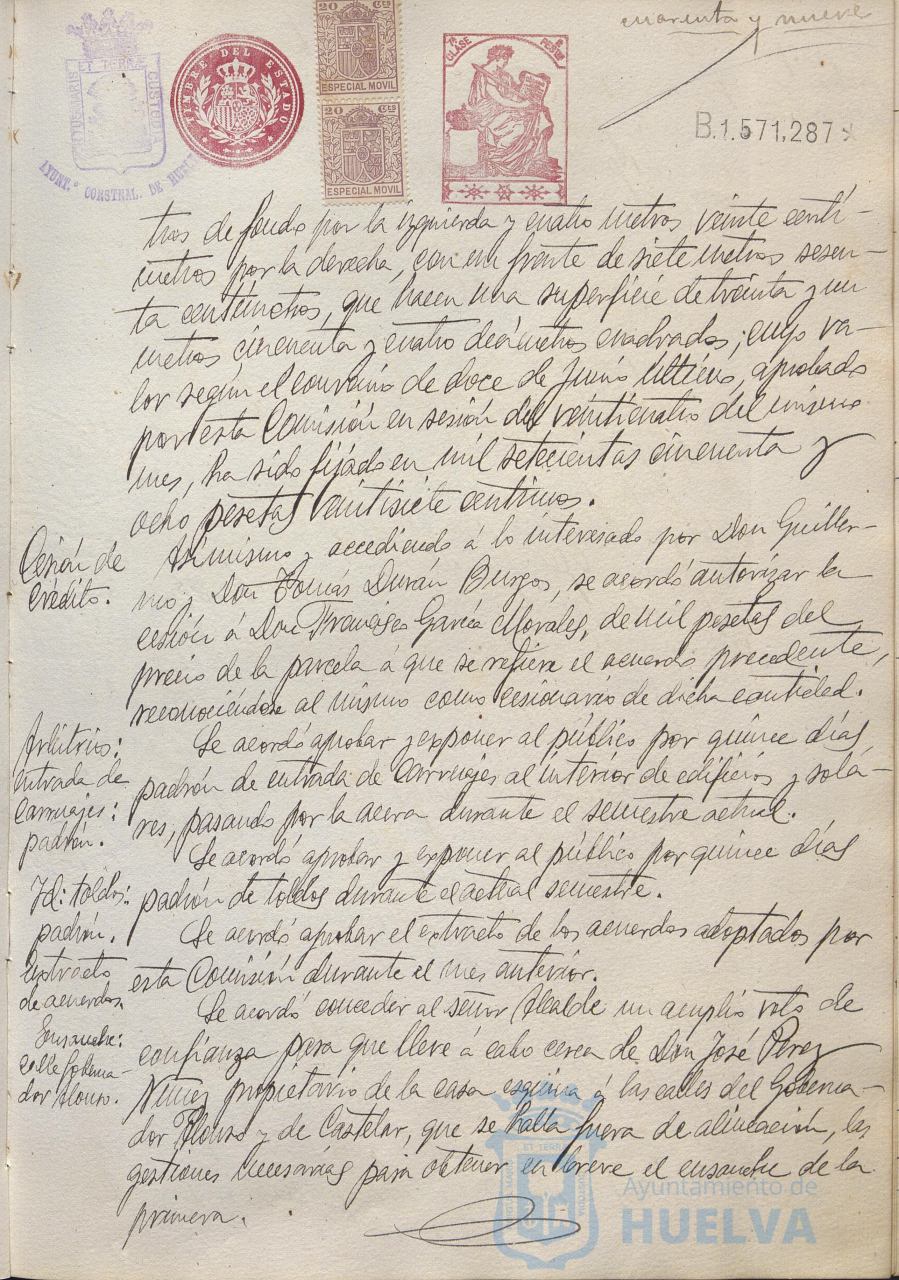 cuarenta y nueve
PORTUS MARIS ET TERRÆ CUSTODIA
AYUNT.º CONSTNAL. DE HUELVA
TIMBRE DEL ESTADO
20 Cts
ESPECIAL MOVIL
20 Cts
ESPECIAL MOVIL
CLASE
B.1.571,287
tros de fondo por la izquierda y cuatro metros veinte centí-
metros por la derecha, con un frente de siete metros sesen-
ta centímetros, que hacen una superficie de treinta y un
metros, cincuenta y cuatro decímetros cuadrados; cuyo va-
lor según el convenio de doce de Junio último, aprobado
por esta Comisión en sesión del veinticuatro del mismo
mes, ha sido fijado en mil setecientas cincuenta y
ocho pesetas veintisiete centimos.
Cesión de
crédito.
Asimismo y accediendo á lo interesado por Don Guiller-
mo y Don Tomás Durán Burgos, se acordó autorizar la
cesión á Don Francisco García Morales, de mil pesetas del
precio de la parcela á que se refiere el acuerdo precedente,
reconociéndose al mismo como cesionario de dicha cantidad.
Arbitrios:
entrada de
carruajes:
padrón.
Se acordó aprobar y exponer al público por quince días
padrón de entrada de carruajes al interior de edificios y sola-
res, pasando por la acera durante el semestre actual.
Id: toldos:
padrón.
Se acordó aprobar y exponer al público por quince días
padrón de toldos durante el actual semestre.
Extracto
de acuerdos.
Se acordó aprobar el extracto de los acuerdos adoptados por
esta Comisión durante el mes anterior.
Ensanche:
calle Goberna-
dor Alonso.
Se acordó conceder al señor Alcalde un amplio voto de
confianza para que lleve á cabo cerca de Don José Perez
Nuñez propietario de la casa esquina á las calles del Goberna-
dor Alonso y de Castelar, que se halla fuera de alineación, las
gestiones necesarias para obtener en breve el ensanche de la
primera.
Ayuntamiento de
HUELVA